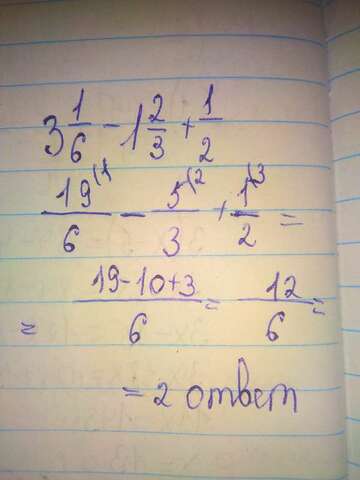 3 1/6 - 1 2/3 + 1/2
19(1/6 - 5(2/3 + 1(3/2 =
= 19-10+3/6 = 12/6 =
= 2 ответ